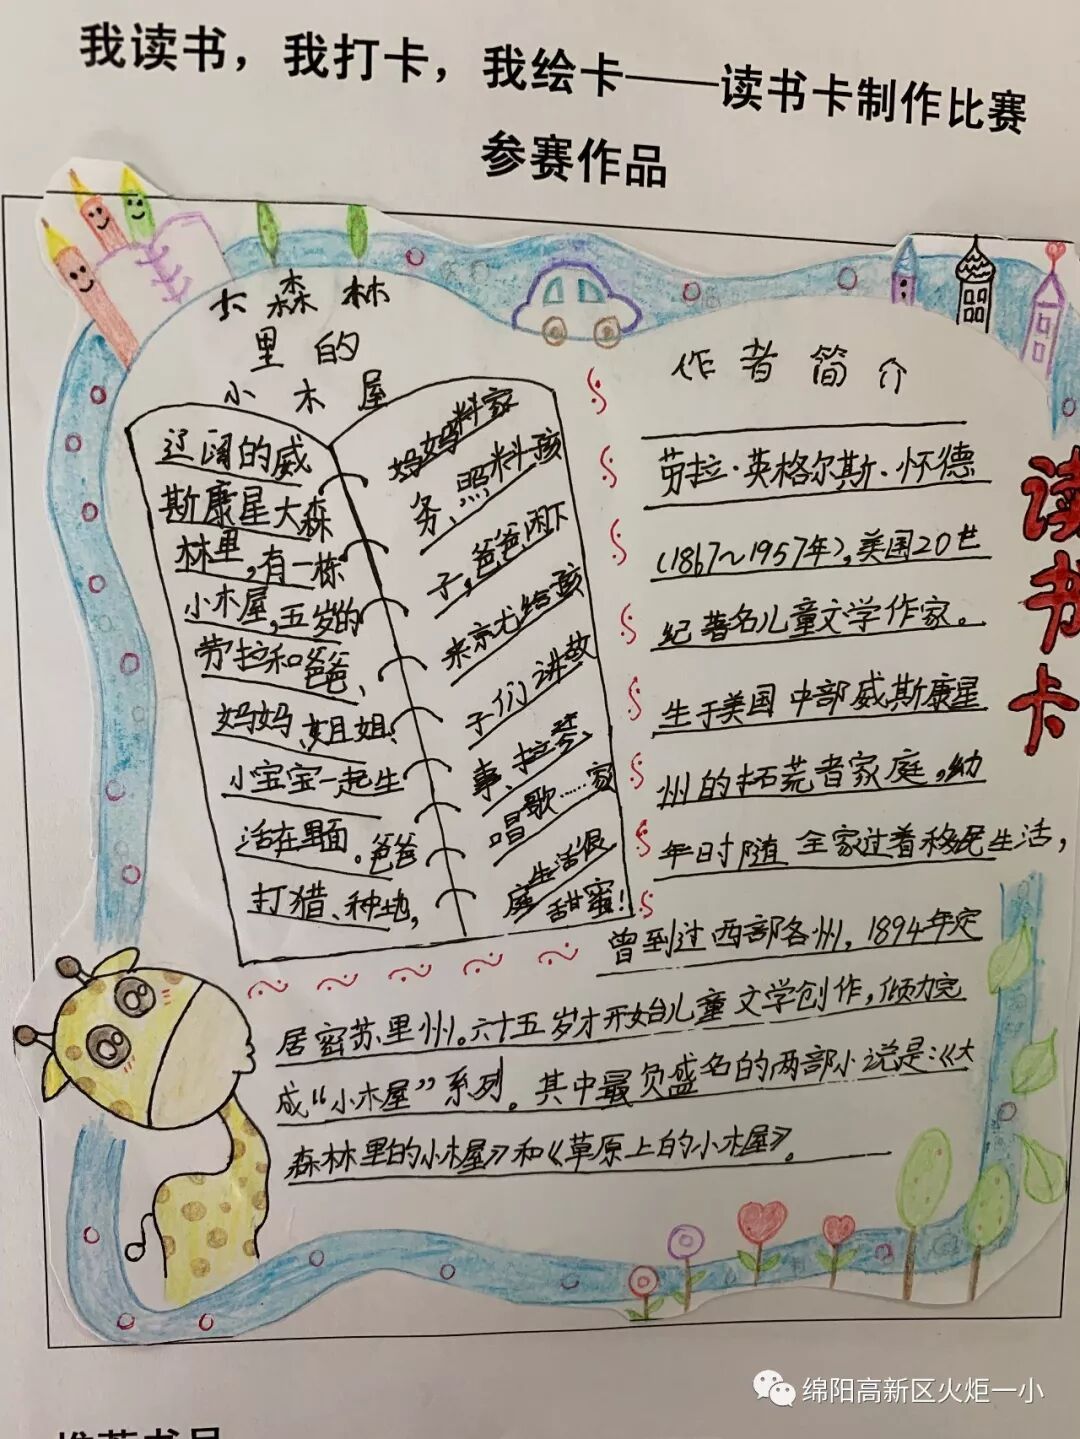 我读书，我打卡，我绘卡——读书卡制作比赛
参赛作品
大森林
里的
小木屋
辽阔的威
斯康星大森
林里，有一栋
小木屋，五岁的
劳拉和爸爸、
妈妈、姐姐、
小宝宝一起生
活在里面。爸爸
打猎、种地，
妈妈料家
务、照料孩
子，爸爸闲下
来就给孩
子们讲故
事、拉琴、
唱歌……家
庭生活很
甜蜜！
作者简介
劳拉·英格尔斯·怀德
（1867～1957年），美国20世
纪著名儿童文学作家。
生于美国中部威斯康星
州的拓荒者家庭，幼
年时随全家过着移民生活，
曾到过西部各州，1894年定
居密苏里州。六十五岁才开始儿童文学创作，倾力完
成“小木屋”系列。其中最负盛名的两部小说是：《大
森林里的小木屋》和《草原上的小木屋》。
读书卡
绵阳高新区火炬一小